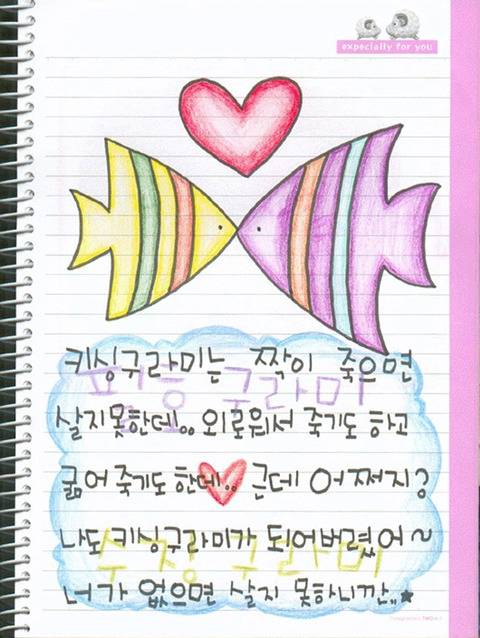 expecially for you
키싱구라미는 짝이 죽으면
구라미
살지못한데.. 외로워서 죽기도 하고
굶어 죽기도 한데.. 근데 어쩌지?
나도 키싱구라미가 되어버렸어~
수정 구라미
너가 없으면 살지 못하니깐..★